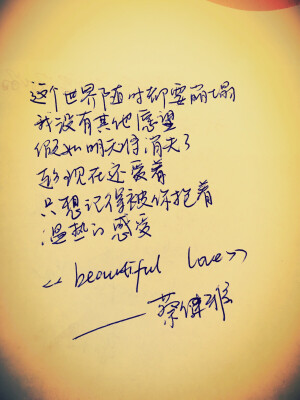 这个世界随时都要崩塌
我没有其他愿望
假如明天将消失了
趁现在还爱着
只想记得被你抱着
温热的感爱
<< beautiful love >>
——蔡健雅